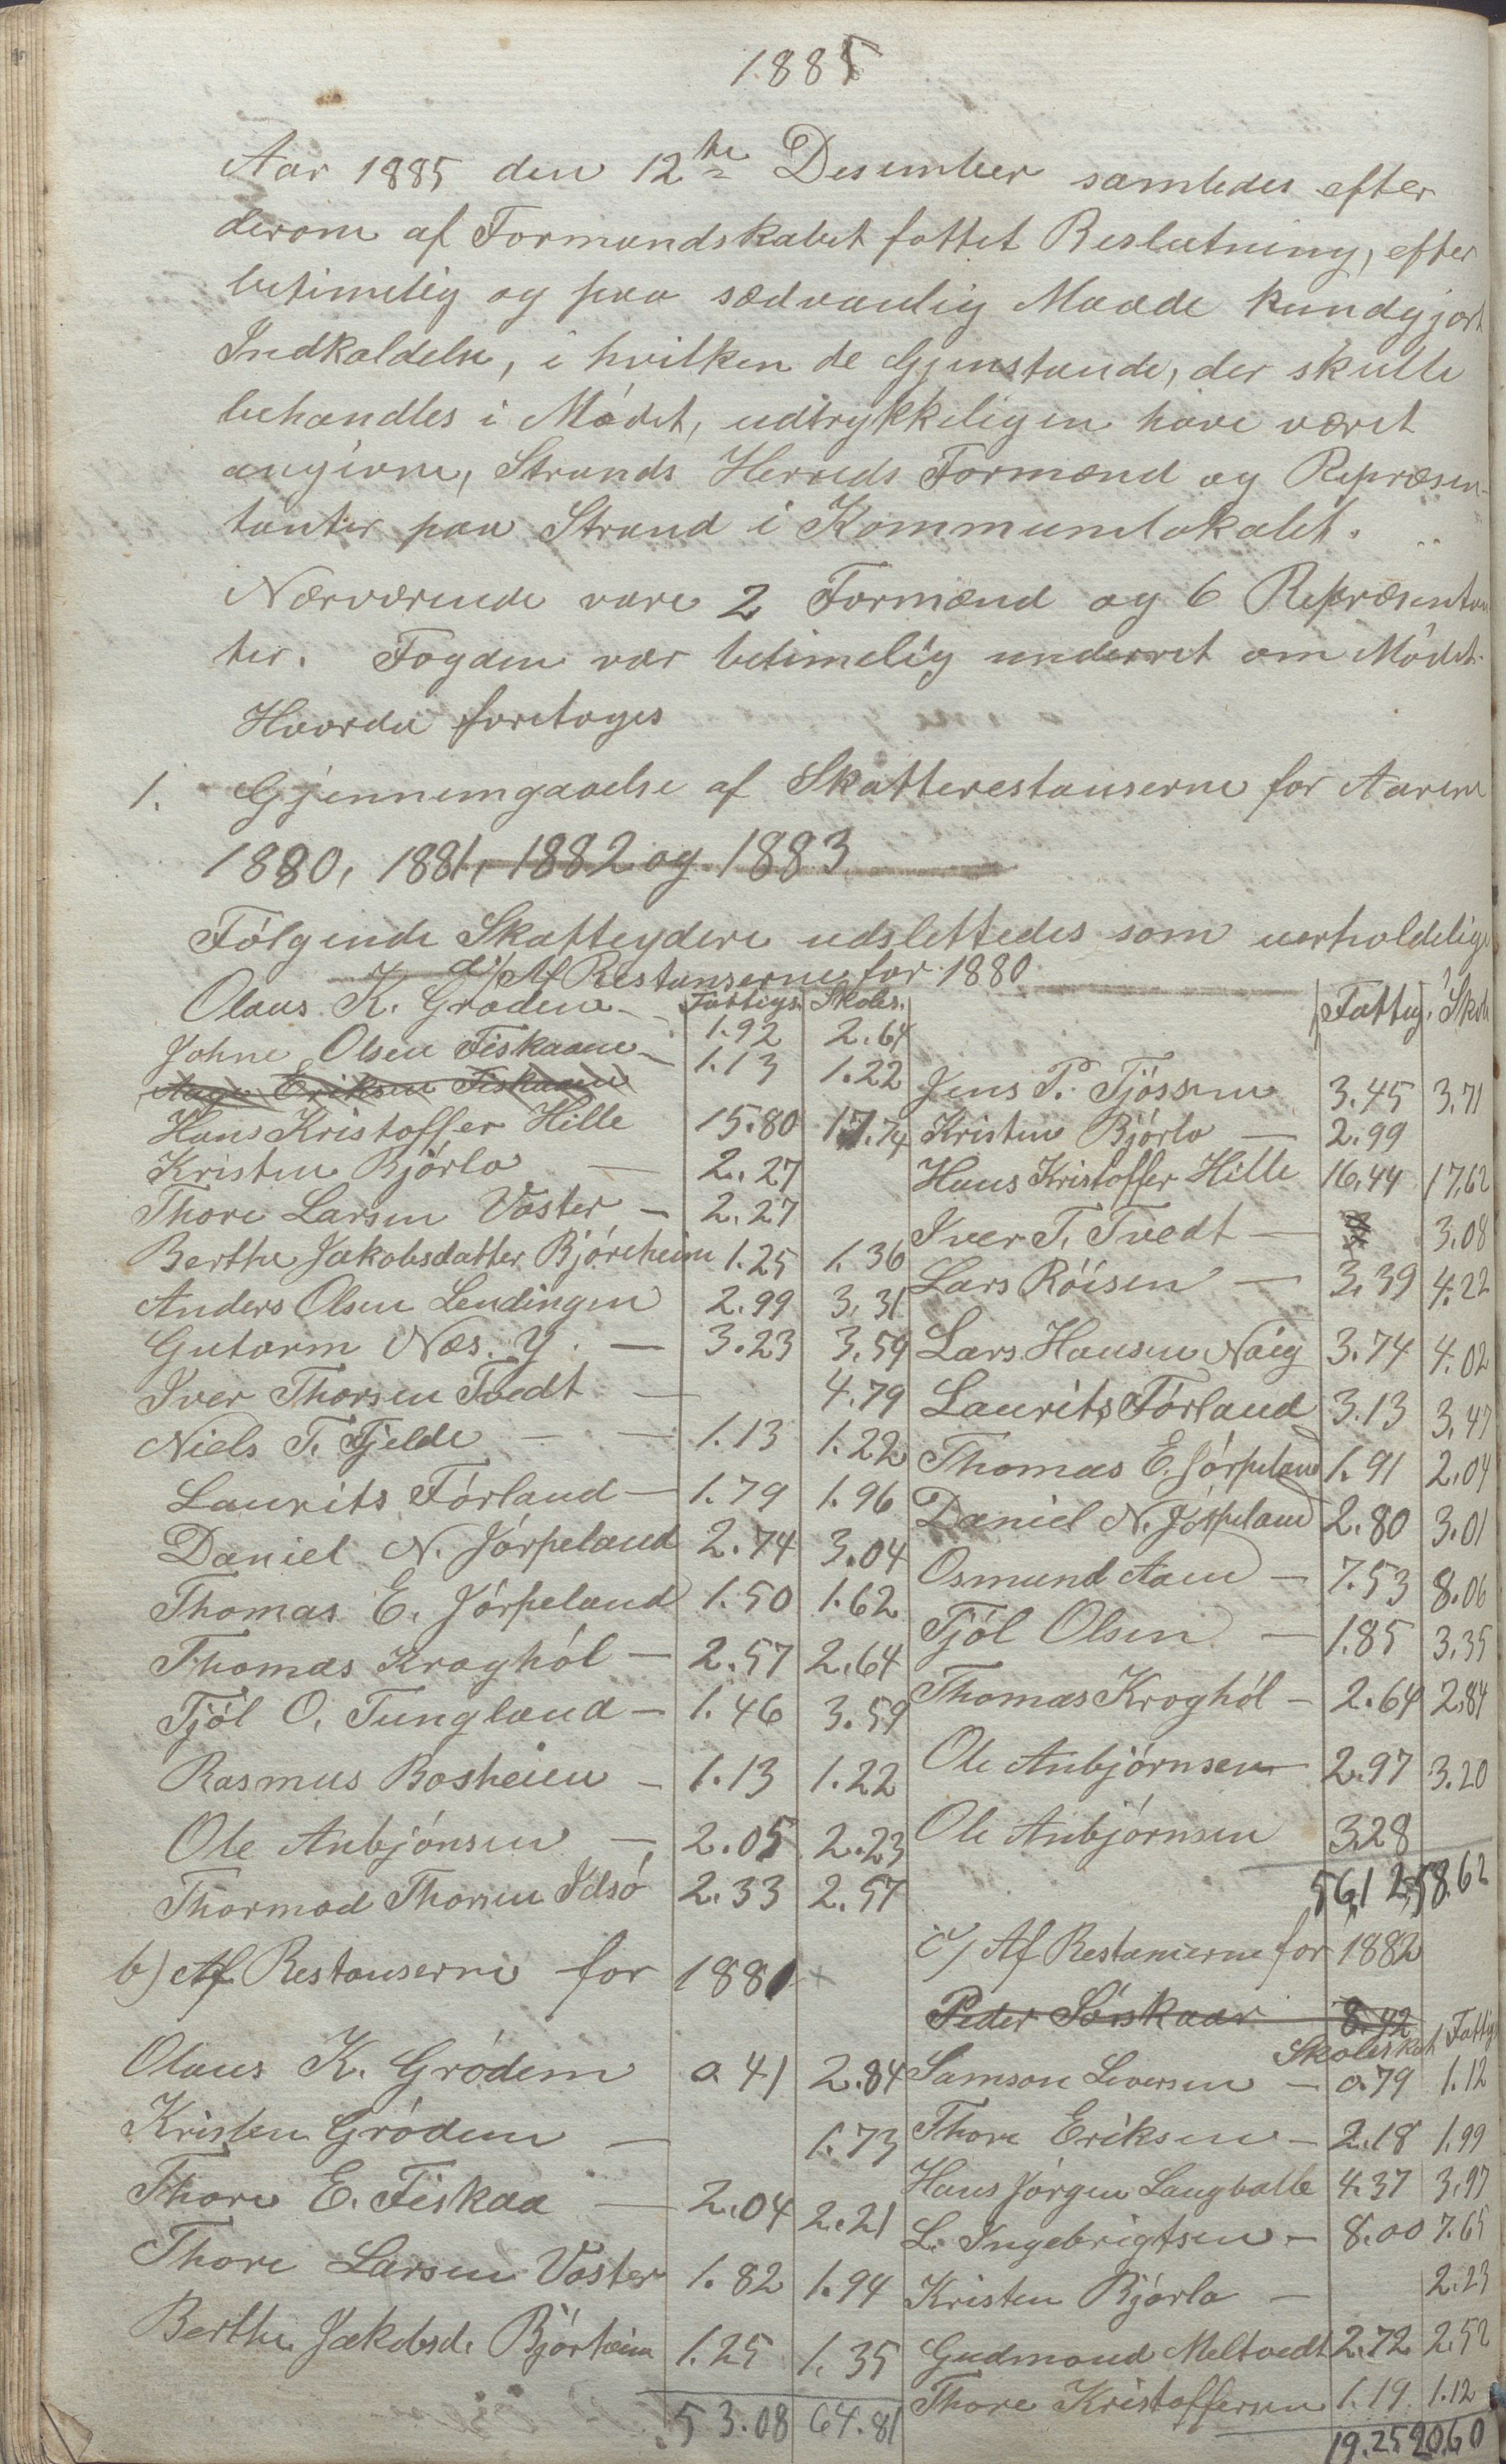 1885
Aar 1885 den 12te Desember samledes efter
derom af Formandskabet fattet Beslutning, efter
betimelig og paa sædvanlig Maade kundgjort
Indkaldelse, i hvilken de Gjenstande, der skulle
behandles i Mødet, udtrykkeligen have været
angivne, Strands Herreds Formænd og Repræsen-
tanter paa Strand i Kommunelokalet.
Nærværende vare 2 Formænd og 6 Repræsentan
ter. Fogden var betimelig underret om Mødet.
Hvorda foretoges
1. Gjennemgaaelse af Skatterestanserne for Aarene
1880, 1881, 1882 og 1883
Følgende Skatteydere udslettedes som uerholdelige
a/ Af Restanserne for 1880
Fattigs. Skoles.
Olaus K. Grødem 1.92 2.64
Johne Olsen Fiskaaen 1.13 1.22
Aage Eriksen Fiskaaen
Hans Kristoffer Hille 15.80 17.74
Kristen Bjørlo 2.27
Thore Larsen Voster 2.27
Berthe Jakobsdatter Björeheim 1.25 1.36
Anders Olsen Lendingen 2.99 3.31
Gutorm Næs. Y. 3.23 3.59
Iver Thorsen Tvedt 4.79
Niels T. Fjelde 1.13 1.22
Laurits Fórland 1.79 1.96
Daniel N. Jórpeland 2.74 3.04
Thomas E. Jórpeland 1.50 1.62
Thomas Kraghól 2.57 2.64
Tjól O. Tungland 1.46 3.59
Rasmus Bosheien 1.13 1.22
Ole Anbjónsen 2.05 2.23
Thormod Thorsen Idsó 2.33 2.57
b) Af Restanserne for 1881
Olaus K. Gródem 0.41 2.84
Kristen Gródem 1.73
Thore E. Fiskaa 2.04 2.21
Thore Larsen Voster 1.82 1.94
Berthe Jakobsd. Bjórheim 1.25 1.35
53.08 64.81
Fattig. Skole
Jens P. Tjóssem 3.45 3.71
Kristen Bjórlo 2.99
Hans Kristoffer Hille 16.44 17.62
Iver T. Tvedt 3.08
Lars Róisen 3.39 4.22
Lars Hansen Naig 3.74 4.02
Laurits Fórland 3.13 3.47
Thomas E. Jórpeland 1.91 2.04
Daniel N. Jórpeland 2.80 3.01
Osmund Aaen 7.53 8.06
Tjól Olsen 1.85 3.35
Thomas Kroghól 2.64 2.84
Ole Anbjórnsen 2.97 3.20
Ole Anbjórnsen 3.28
56.12 58.62
c/ Af Restanserne for 1882
Peder Sórskaar 8.42
Skoleskat Fattig
Samson Seversen 0.79 1.12
Thore Eriksen 2.18 1.99
Hans Jórgen Langballe 4.37 3.97
L. Ingebrigtsen 8.00 7.65
Kristen Bjórlo 2.23
Gudmund Meltvedt 2.72 2.52
Thore Kristoffersen 1.19 1.12
19.25 20.60